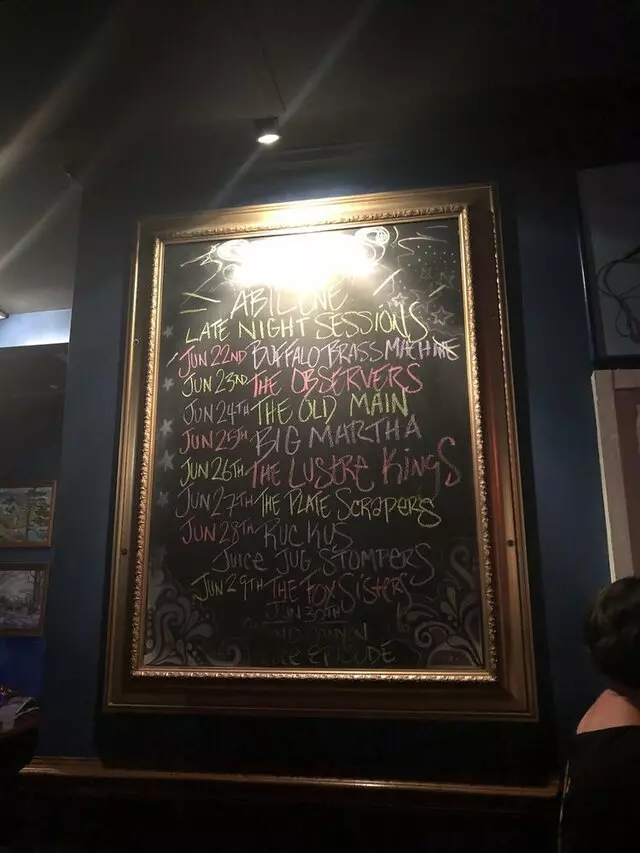 ABILENE
LATE NIGHT SESSIONS
JUN 22ND BUFFALO BRASS MACHINE
JUN 23RD THE OBSERVERS
JUN 24TH THE OLD MAIN
JUN 25TH BIG MARTHA
JUN 26TH THE LUSTRE KINGS
JUN 27TH THE PLATE SCRAPERS
JUN 28TH RUCKUS
JUICE JUG STOMPERS
JUN 29TH THE FOX SISTERS
JUN 30TH
EPISODE